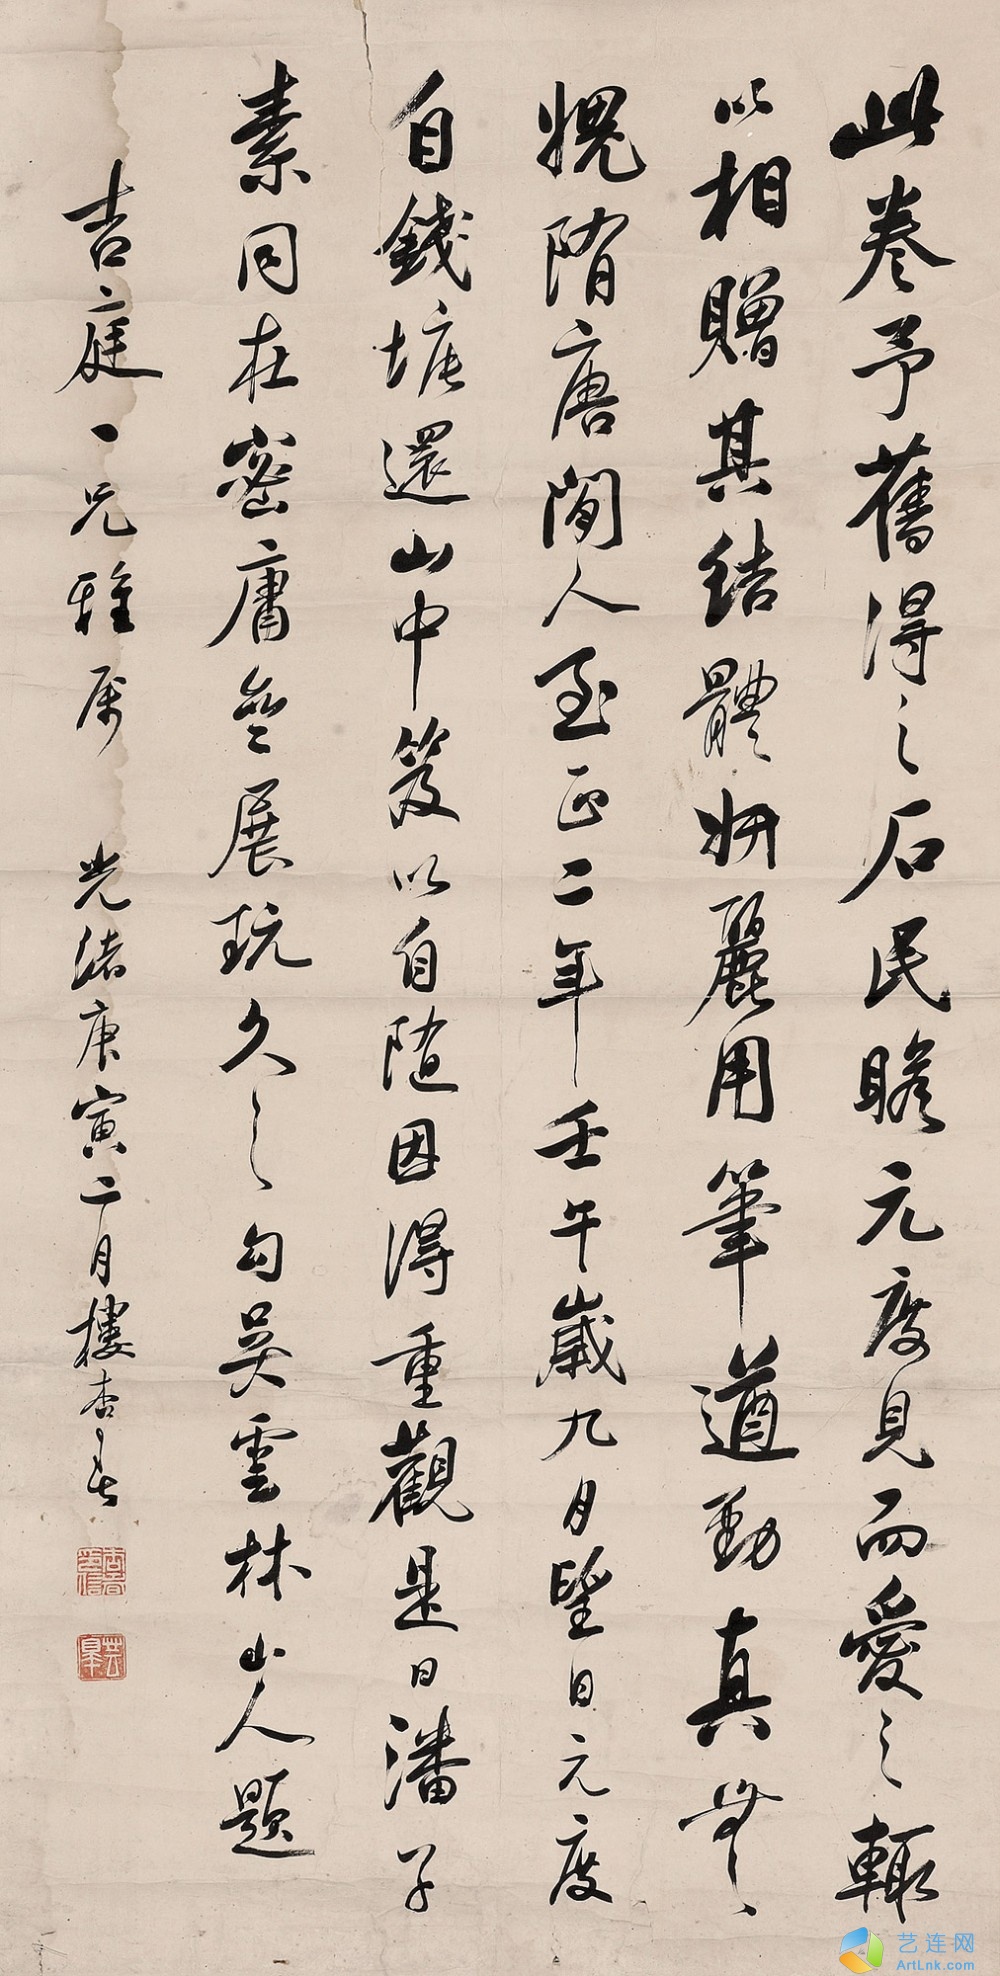 此卷予舊得之石民瞻元度見而愛之輙
以相贈其結體妍麗用筆遒勁真無
媿隋唐間人至正二年壬午歲九月望日元度
自錢塘還山中笈以自隨因得重觀是日潘子
素同在密庸亝展玩久之句吳雲林山人題
吉庭一兄雅属 光緒庚寅二月樓杏春
杏春印信
芸皋
艺连网
ArtLnk.com